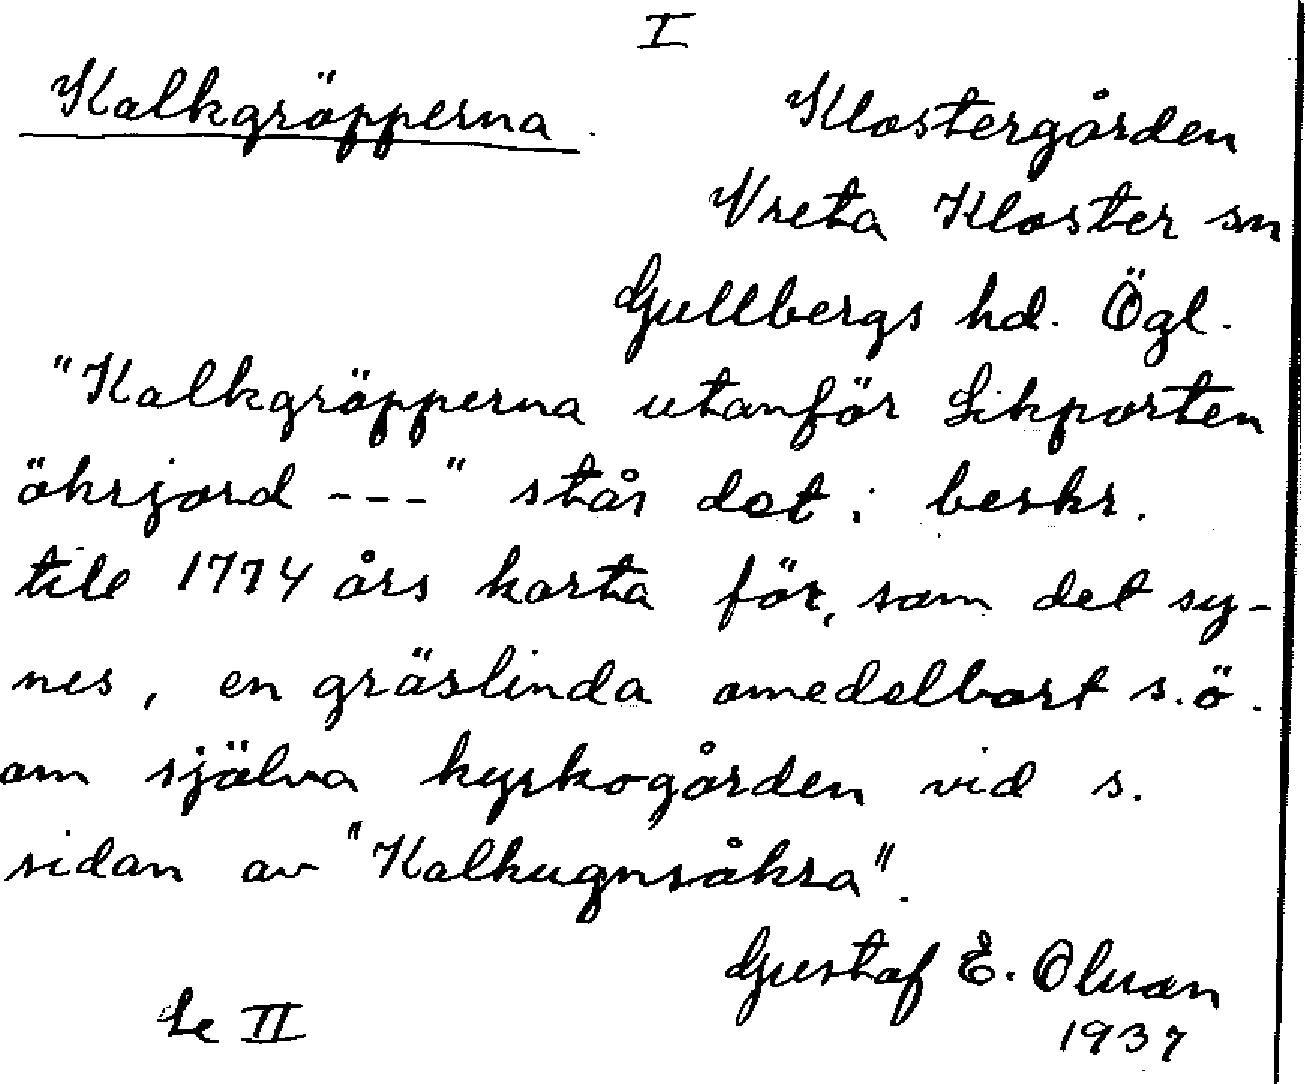 I
Kalkgröpperna.
Klostergården
Vreta Kloster sn
Gullbergs hd. Ögl.
"Kalkgröpperna utanför Likporten
åkrjord ---" står det i beskr.
till 1774 års karta för, som det sy-
nes, en gräslinda omedelbart s.ö.
om själva kyrkogården vid s.
sidan av "Kalkugnsåkra".
Gustaf E. Olsson
1937
Se II